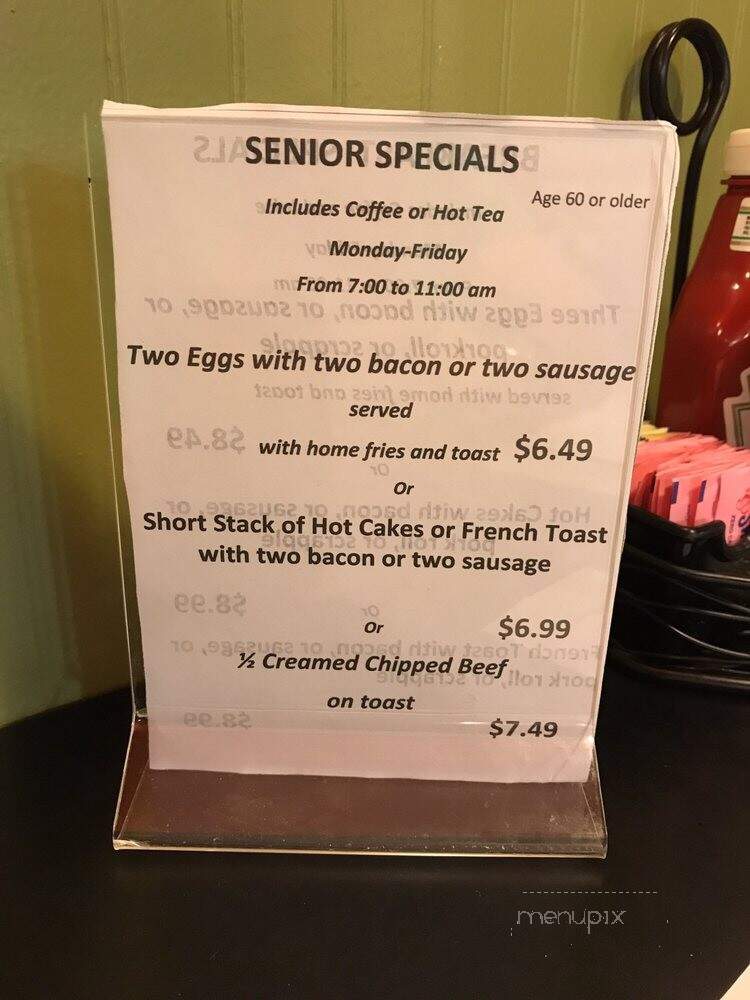 SENIOR SPECIALS
Age 60 or older
Includes Coffee or Hot Tea
Monday-Friday
From 7:00 to 11:00 am
Two Eggs with two bacon or two sausage
served
with home fries and toast $6.49
Or
Short Stack of Hot Cakes or French Toast
with two bacon or two sausage
$6.99
Or
½ Creamed Chipped Beef
on toast
$7.49
menupix